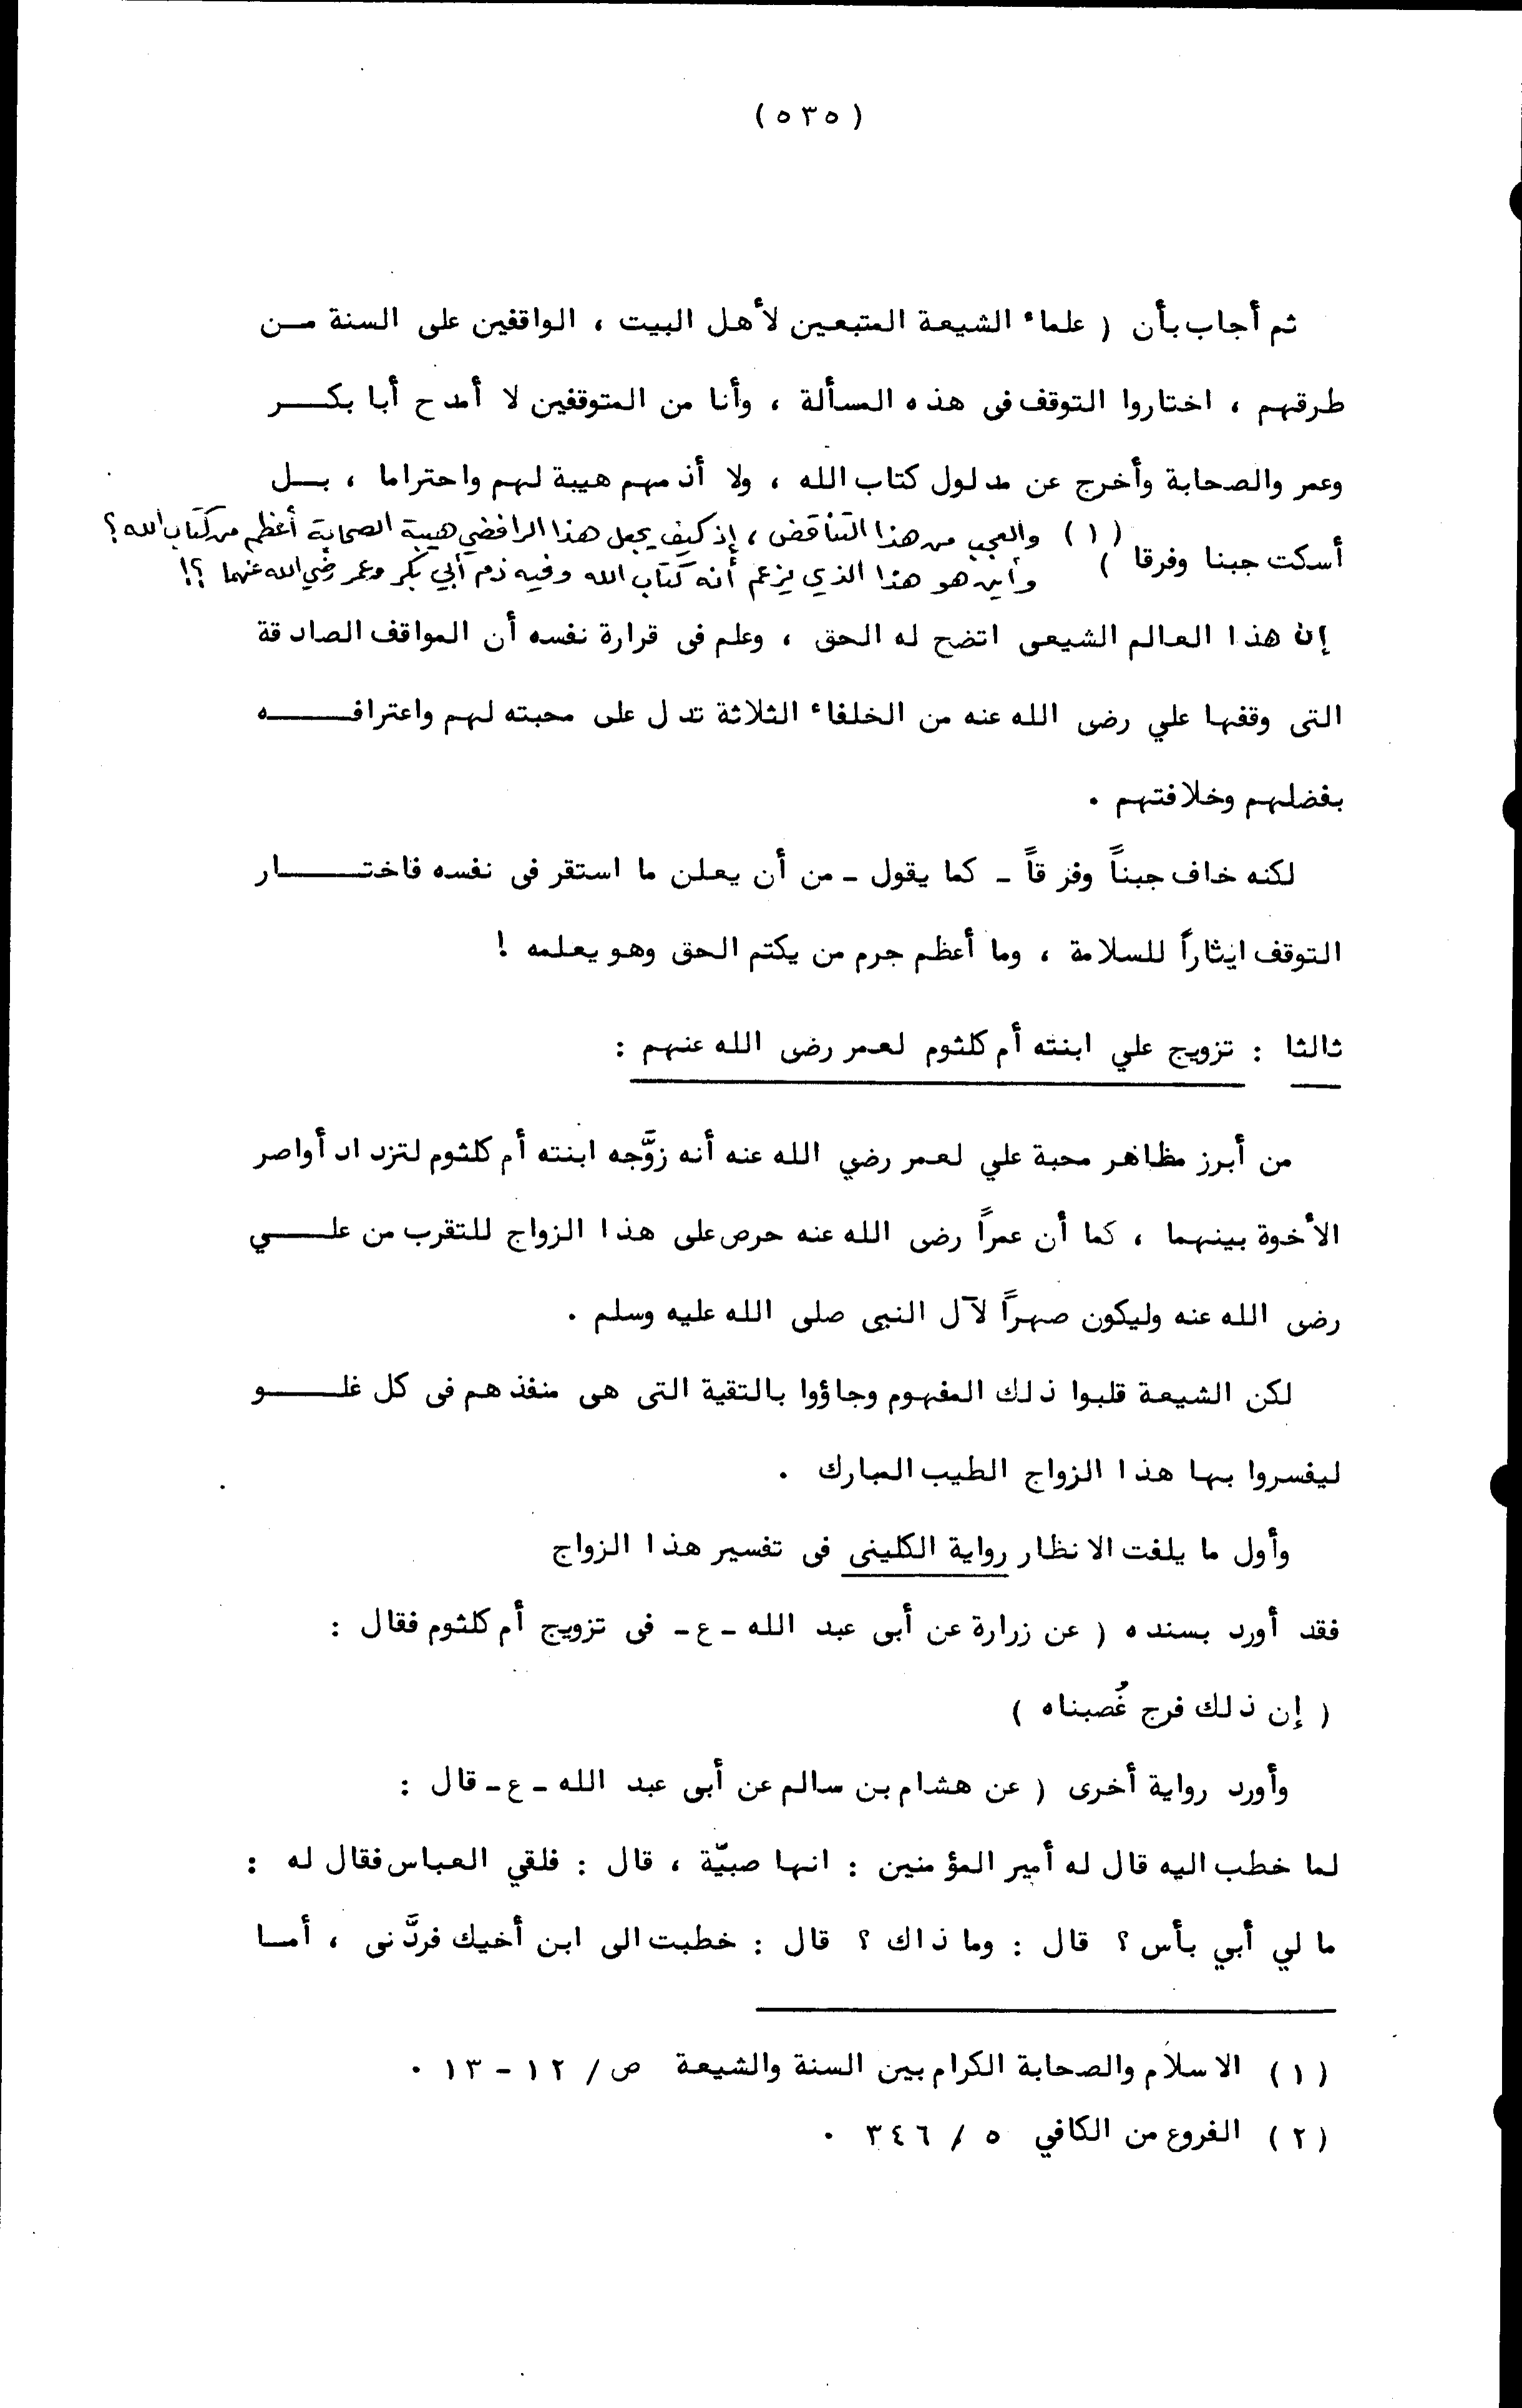 (٥٣٥)
ثم أجاب بأن ( علماء الشيعة المتبعين لأهل البيت ، الواقفين على السنة مـن
طرقهم ، اختاروا التوقف فى هذه المسألة ، وأنا من المتوقفين لا أمدح أبا بكـــر
وعمر والصحابة وأخرج عن مدلول كتاب الله ، ولا أذمهم هيبة لهم واحتراما ، بـل
أسكت جبنا وفرقا ) (١) والعجب من هذا التناقض ، إذ كيف يجعل هذا الرافضي هيبة الصحابة أعظم من كتاب الله ؟
وأين هو هذا الذي يزعم أنه كتاب الله وفيه ذم أبي بكر وعمر رضي الله عنهما ؟!
إن هذا العالم الشيعى اتضح له الحق ، وعلم فى قرارة نفسه أن المواقف الصادقة
التى وقفها علي رضى الله عنه من الخلفاء الثلاثة تدل على محبته لهم واعترافـــــه
بفضلهم وخلافتهم .
لكنه خاف جبناً وفرقاً - كما يقول - من أن يعلن ما استقر فى نفسه فاختـــــار
التوقف ايثاراً للسلامة ، وما أعظم جرم من يكتم الحق وهو يعلمه !
ثالثا : تزويج علي ابنته أم كلثوم لعمر رضى الله عنهم :
من أبرز مظاهر محبة علي لعمر رضي الله عنه أنه زوَّجه ابنته أم كلثوم لتزداد أواصر
الأخوة بينهما ، كما أن عمراً رضى الله عنه حرص على هذا الزواج للتقرب من علـــي
رضى الله عنه وليكون صهراً لآل النبى صلى الله عليه وسلم .
لكن الشيعة قلبوا ذلك المفهوم وجاؤوا بالتقية التى هى منفذهم فى كل غلـــــو
ليفسروا بها هذا الزواج الطيب المبارك .
وأول ما يلفت الانظار رواية الكلينى فى تفسير هذا الزواج
فقد أورد بسنده ( عن زرارة عن أبى عبد الله - ع - فى تزويج أم كلثوم فقال :
( إن ذلك فرج غُصبناه )
وأورد رواية أخرى ( عن هشام بن سالم عن أبى عبد الله - ع - قال :
لما خطب اليه قال له أمير المؤمنين : انها صبيّة ، قال : فلقي العباس فقال له :
ما لي أبي بأس ؟ قال : وما ذاك ؟ قال : خطبت الى ابن أخيك فردَّنى ، أمـا
(١) الاسلام والصحابة الكرام بين السنة والشيعة ص / ١٢ - ١٣ .
(٢) الفروع من الكافي ٥ / ٣٤٦ .